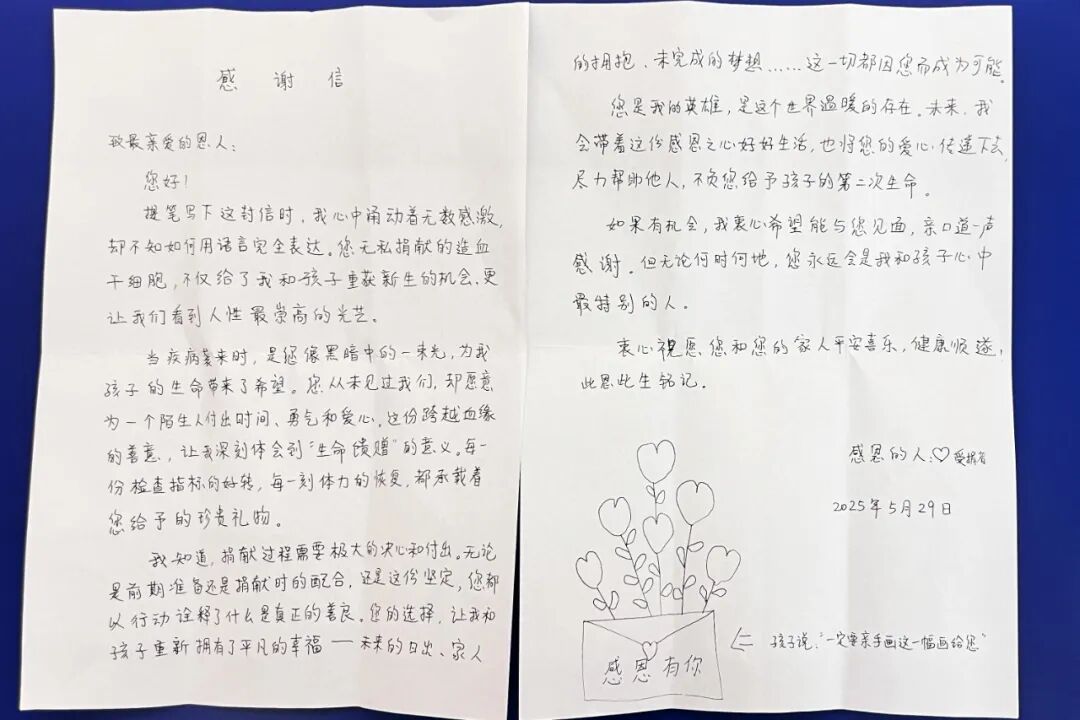 感谢信
致最亲爱的恩人：
您好！
提笔写下这封信时，我心中涌动着无数感激，
却不知如何用语言完全表达。您无私捐献的造血
干细胞，不仅给了我和孩子重获新生的机会，更
让我们看到人性最崇高的光芒。
当疾病袭来时，是您像黑暗中的一束光，为我
孩子的生命带来了希望。您从未见过我们，却愿意
为一个陌生人付出时间、勇气和爱心。这份跨越血缘
的善意，让我深刻体会到“生命馈赠”的意义。每一
份检查指标的好转，每一刻体力的恢复，都承载着
您给予的珍贵礼物。
我知道，捐献过程需要极大的决心和付出。无论
是前期准备还是捐献时的配合，还是这份坚定，您都
以行动诠释了什么是真正的善良。您的选择，让我和
孩子重新拥有了平凡的幸福——未来的日出、家人
的拥抱、未完成的梦想……这一切都因您而成为可能。
您是我的英雄，是这个世界温暖的存在。未来，我
会带着这份感恩之心好好生活，也将您的爱心传递下去，
尽力帮助他人，不负您给予孩子的第二次生命。
如果有机会，我衷心希望能与您见面，亲口道一声
感谢。但无论何时何地，您永远会是我和孩子心中
最特别的人。
衷心祝愿您和您的家人平安喜乐，健康顺遂，
此恩此生铭记。
感恩的人：♡受捐者
2025年5月29日
孩子说：“一定要亲手画这一幅画给您”
感恩有你